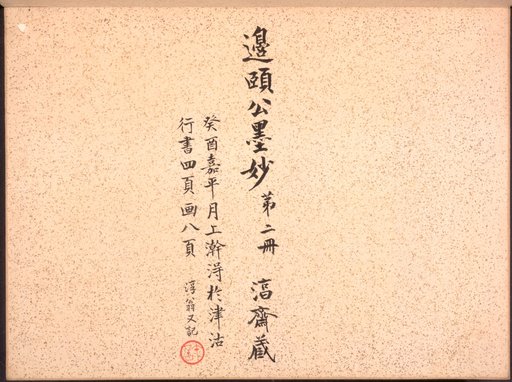 邊頤公墨妙 第二冊 滈齋藏
癸酉嘉平月上澣得於津沽
行書四頁画八頁 淳翁又記